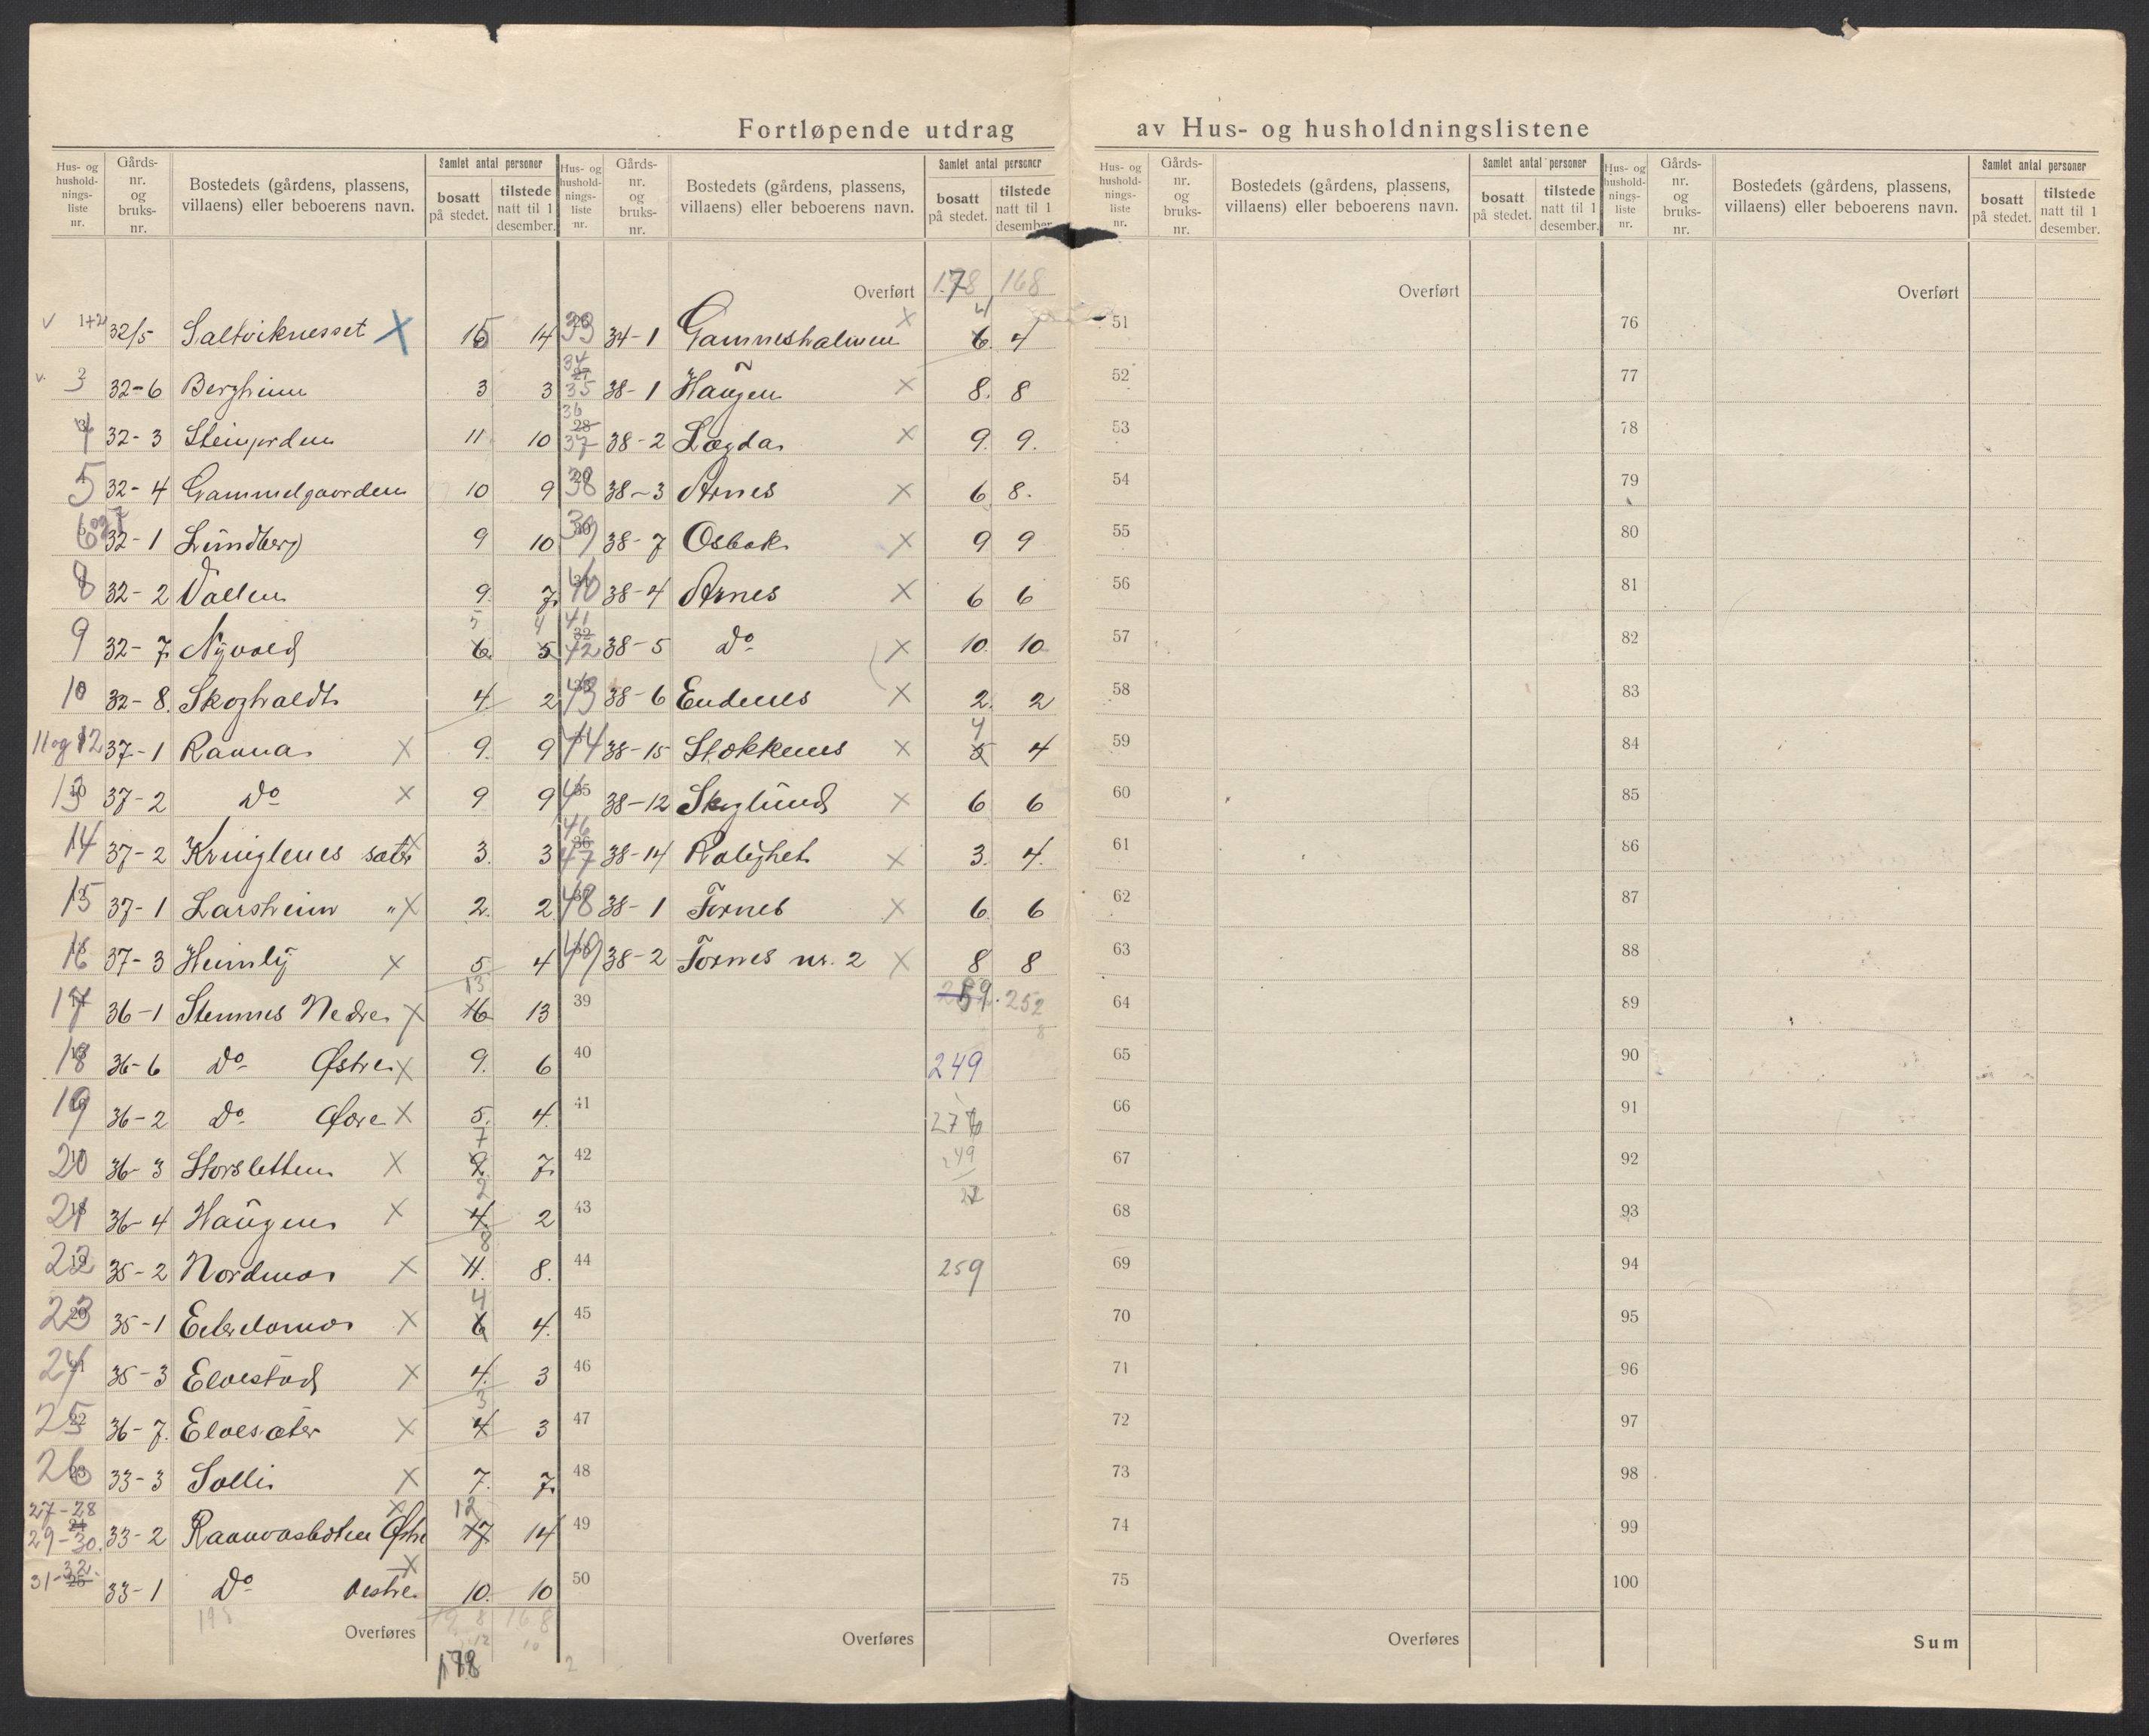 Fortløpende utdrag av Hus- og husholdningslistene
Hus- og husholdningsliste nr. Gårds- nr. og bruks- nr. Bostedets (gårdens, plassens, villaens) eller beboerens navn. Samlet antal personer bosatt på stedet. tilstede natt til 1 desember.
Hus- og husholdningsliste nr. Gårds- nr. og bruks- nr. Bostedets (gårdens, plassens, villaens) eller beboerens navn. Samlet antal personer bosatt på stedet. tilstede natt til 1 desember.
Hus- og husholdningsliste nr. Gårds- nr. og bruks- nr. Bostedets (gårdens, plassens, villaens) eller beboerens navn. Samlet antal personer bosatt på stedet. tilstede natt til 1 desember.
Hus- og husholdningsliste nr. Gårds- nr. og bruks- nr. Bostedets (gårdens, plassens, villaens) eller beboerens navn. Samlet antal personer bosatt på stedet. tilstede natt til 1 desember.
1+2 32/5 Saltviknesset X 15 14
3 32-6 Bergheim 3 3
4 32-3 Steinjorden 11 10
5 32-4 Gammelgaarden 10 9
6 og 7 32-1 Lundberg 9 10
8 32-2 Vollen 9. 7.
9 32-7. Nyvold 6 5 5 4
10 32-8. Skogholdt 4. 2
11 og 12 37-1 Rauna X 9. 9
13 37-2 Do X 9 9
14 37-2 Kringlenes sæter X 3. 3
15 37-1 Larsheim " X 2. 2
16 37-3 Heimly X 5 4
17 36-1 Stemnes Nedre X 16 13 13
18 36-6 Do Østre X 9. 6
19 36-2 Do Øvre X 5. 4.
20 36-3 Storsletten X 9. 7 7.
21 36-4 Haugen X 4. 2 2
22 35-2 Nordmo X 11. 8 8.
23 35-1 X 6 4 4.
24 35-3 Elvestad X 4. 3
25 36-7. Elvesæter X 4 3 3
26 33-3 Solli X 7. 7.
27-28 29-30. 33-2 Østre X 17 12 14
31-32 33-1 Do Vestre X 10. 10
Overføres 168
178
Overført 178 168
33 34-1 X 6. 4 4
34 35 38-1 Haugen X 8. 8
36 37 38-2 Lægda X 9. 9.
38 38-3 Arnes X 6 8.
39 38-7 Osbak X 9 9
40 38-4 Arnes X 6 6
41 42 38-5 Do X 10. 10
43 38-6 Endenes X 2. 2
44 38-15 Stokkenes X 5 4 4
45 38-12 Skoglund X 6 6
46 47 38-14 Rolighet X 3. 4.
48 38-1 Fornes X 6. 6
49 38-2 Fornes nr. 2 X 8 8
39 252
40 249
41
42 49
43
44 259
45
46
47
48
49
50
Overføres
Overført
51
52
53
54
55
56
57
58
59
60
61
62
63
64
65
66
67
68
69
70
71
72
73
74
75
Overføres
Overført
76
77
78
79
80
81
82
83
84
85
86
87
88
89
90
91
92
93
94
95
96
97
98
99
100
Sum